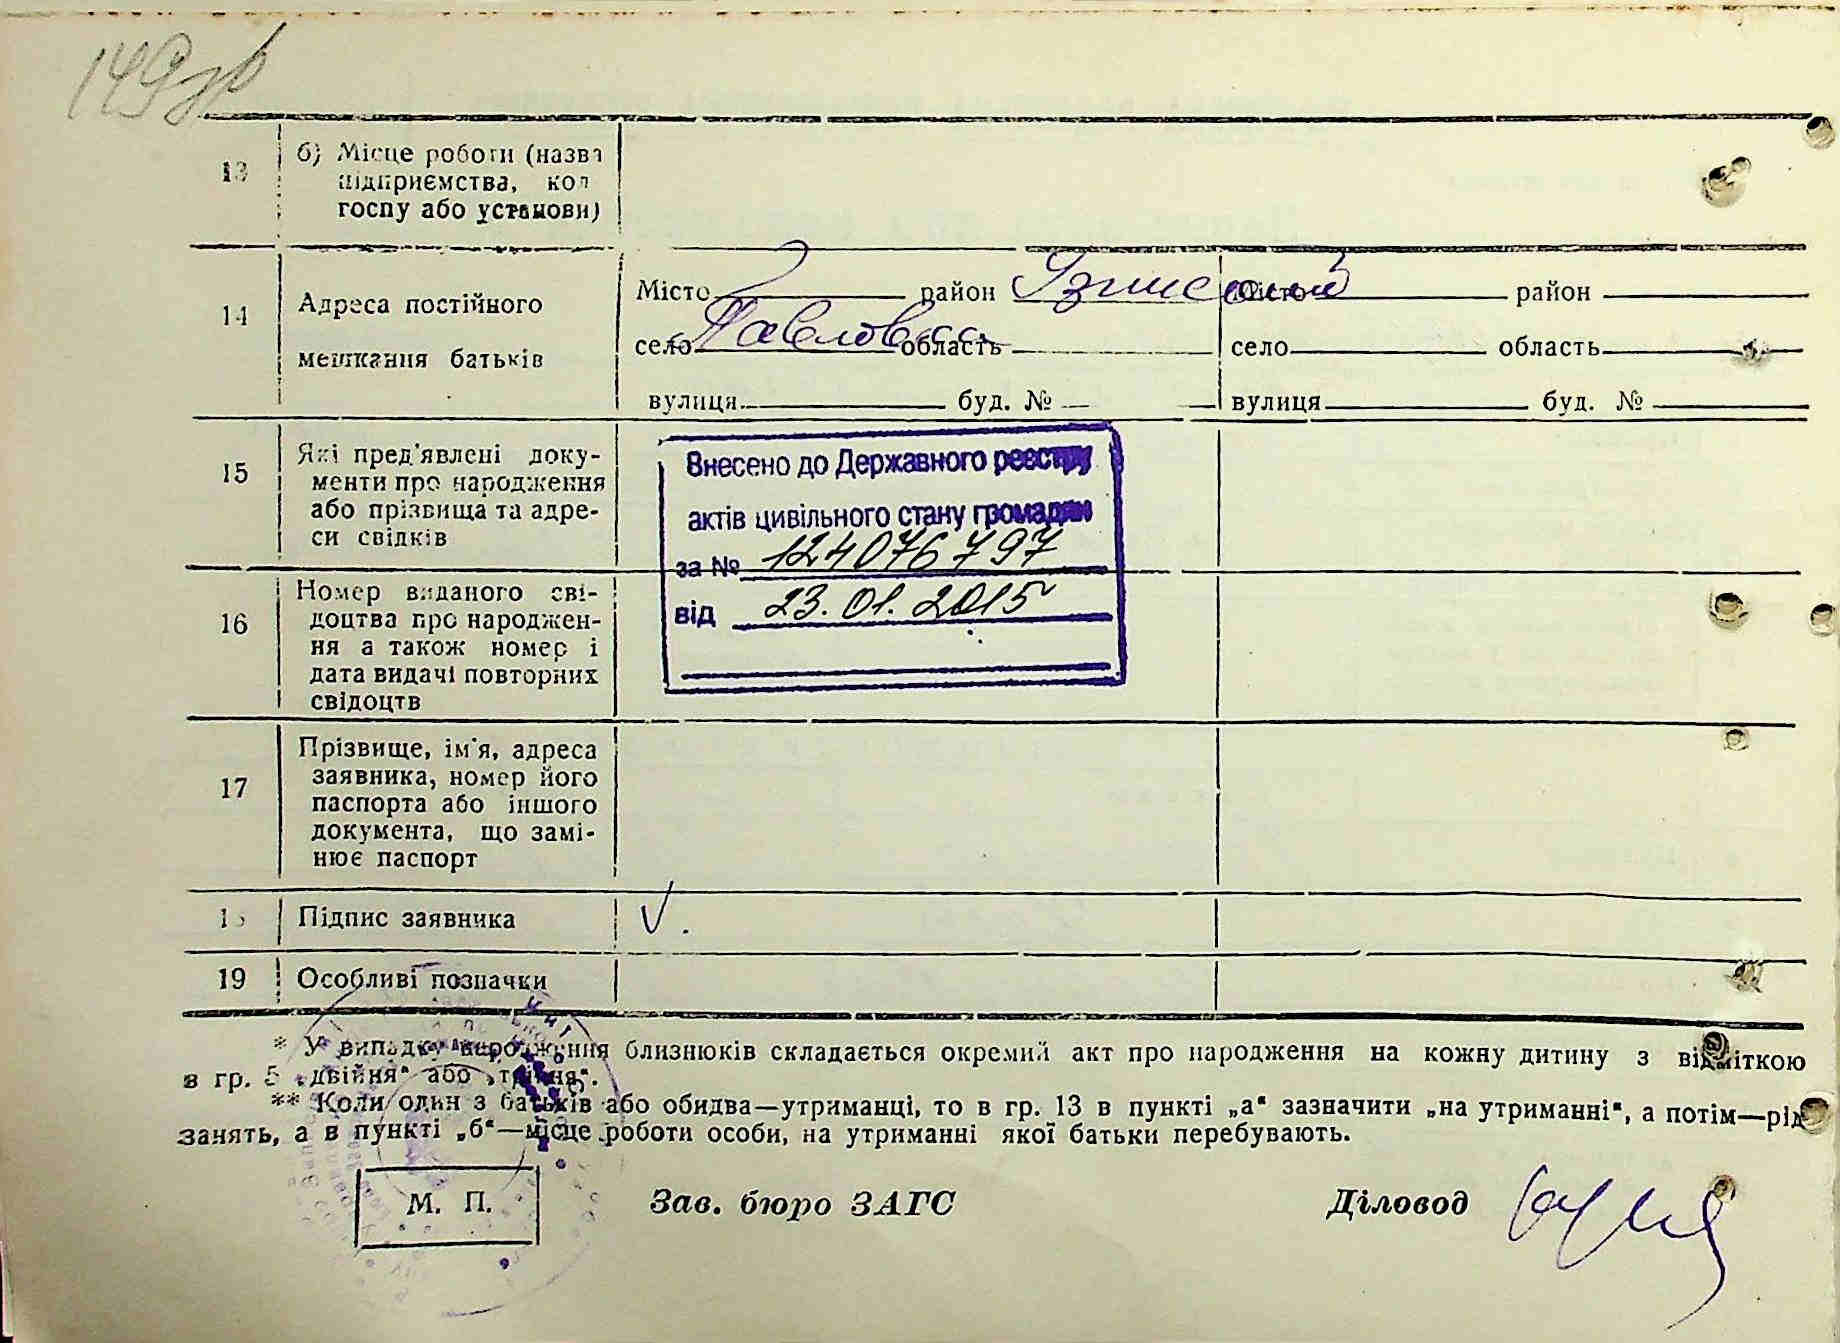 149
13
б) Місце роботи (назва
підприємства, кол
госпу або установи)
14
Адреса постійного
мешкання батьків
Місто район
село Павловка область
вулиця буд. №
Місто район
село область
вулиця буд. №
15
Які пред'явлені доку-
менти про народження
або прізвища та адре-
си свідків
Внесено до Державного реєстру
актів цивільного стану громадян
за № 124076797
від 23.01.2015
16
Номер виданого сві-
доцтва про народжен-
ня а також номер і
дата видачі повторних
свідоцтв
17
Прізвище, ім'я, адреса
заявника, номер його
паспорта або іншого
документа, що замі-
нює паспорт
18
Підпис заявника
V.
19
Особливі позначки
* У випадку народження близнюків складається окремий акт про народження на кожну дитину з відміткою
в гр. 5 „двійня“ або „трійня“.
** Коли один з батьків або обидва—утриманці, то в гр. 13 в пункті „а“ зазначити „на утриманні“, а потім—рід
занять, а в пункті „б“—місце роботи особи, на утриманні якої батьки перебувають.
М. П.
Зав. бюро ЗАГС
Діловод